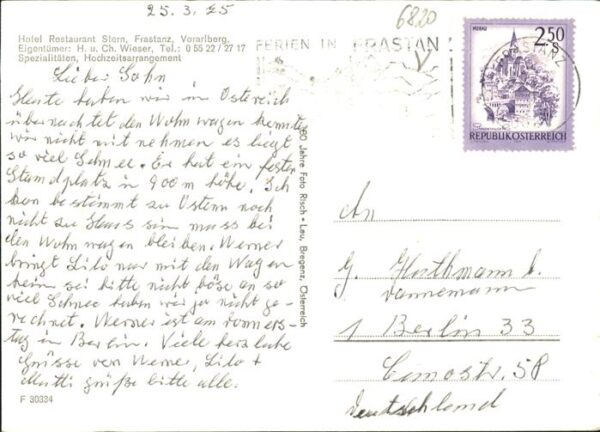 25. 3. 75
6820
Hotel Restaurant Stern, Frastanz, Vorarlberg.
Eigentümer: H. u. Ch. Wieser, Tel.: 0 55 22 / 27 17
Spezialitäten, Hochzeitsarrangement
FERIEN IN FRASTANZ
MURAU
2.50
S
FRASTANZ
REPUBLIK ÖSTERREICH
Lieber Sohn
Heute haben wir in Östereich
übernachtet den Wohnwagen konnten
wir nicht mit nehmen es liegt
so viel Schnee. Er hat ein festen
Standplatz in 900 m höhe. Ich
kan bestimmt zu Ostern noch
nicht zu Haus sein muss bei
den Wohnwagen bleiben. Werner
bringt Lilo nur mit den Wagen
heim sei bitte nicht böse an so
viel Schnee haben wir ja nicht ge-
rechnet. Werner ist am Donners-
tag in Berlin. Viele herzliche
Grüsse von Werner, Lilo +
Mutti grüße bitte alle.
F 30334
Jahre Foto Risch-Lau, Bregenz, Österreich
An
G. Horthmann b.
Dannemann
1 Berlin 33
Cunostr. 58
Deutschland